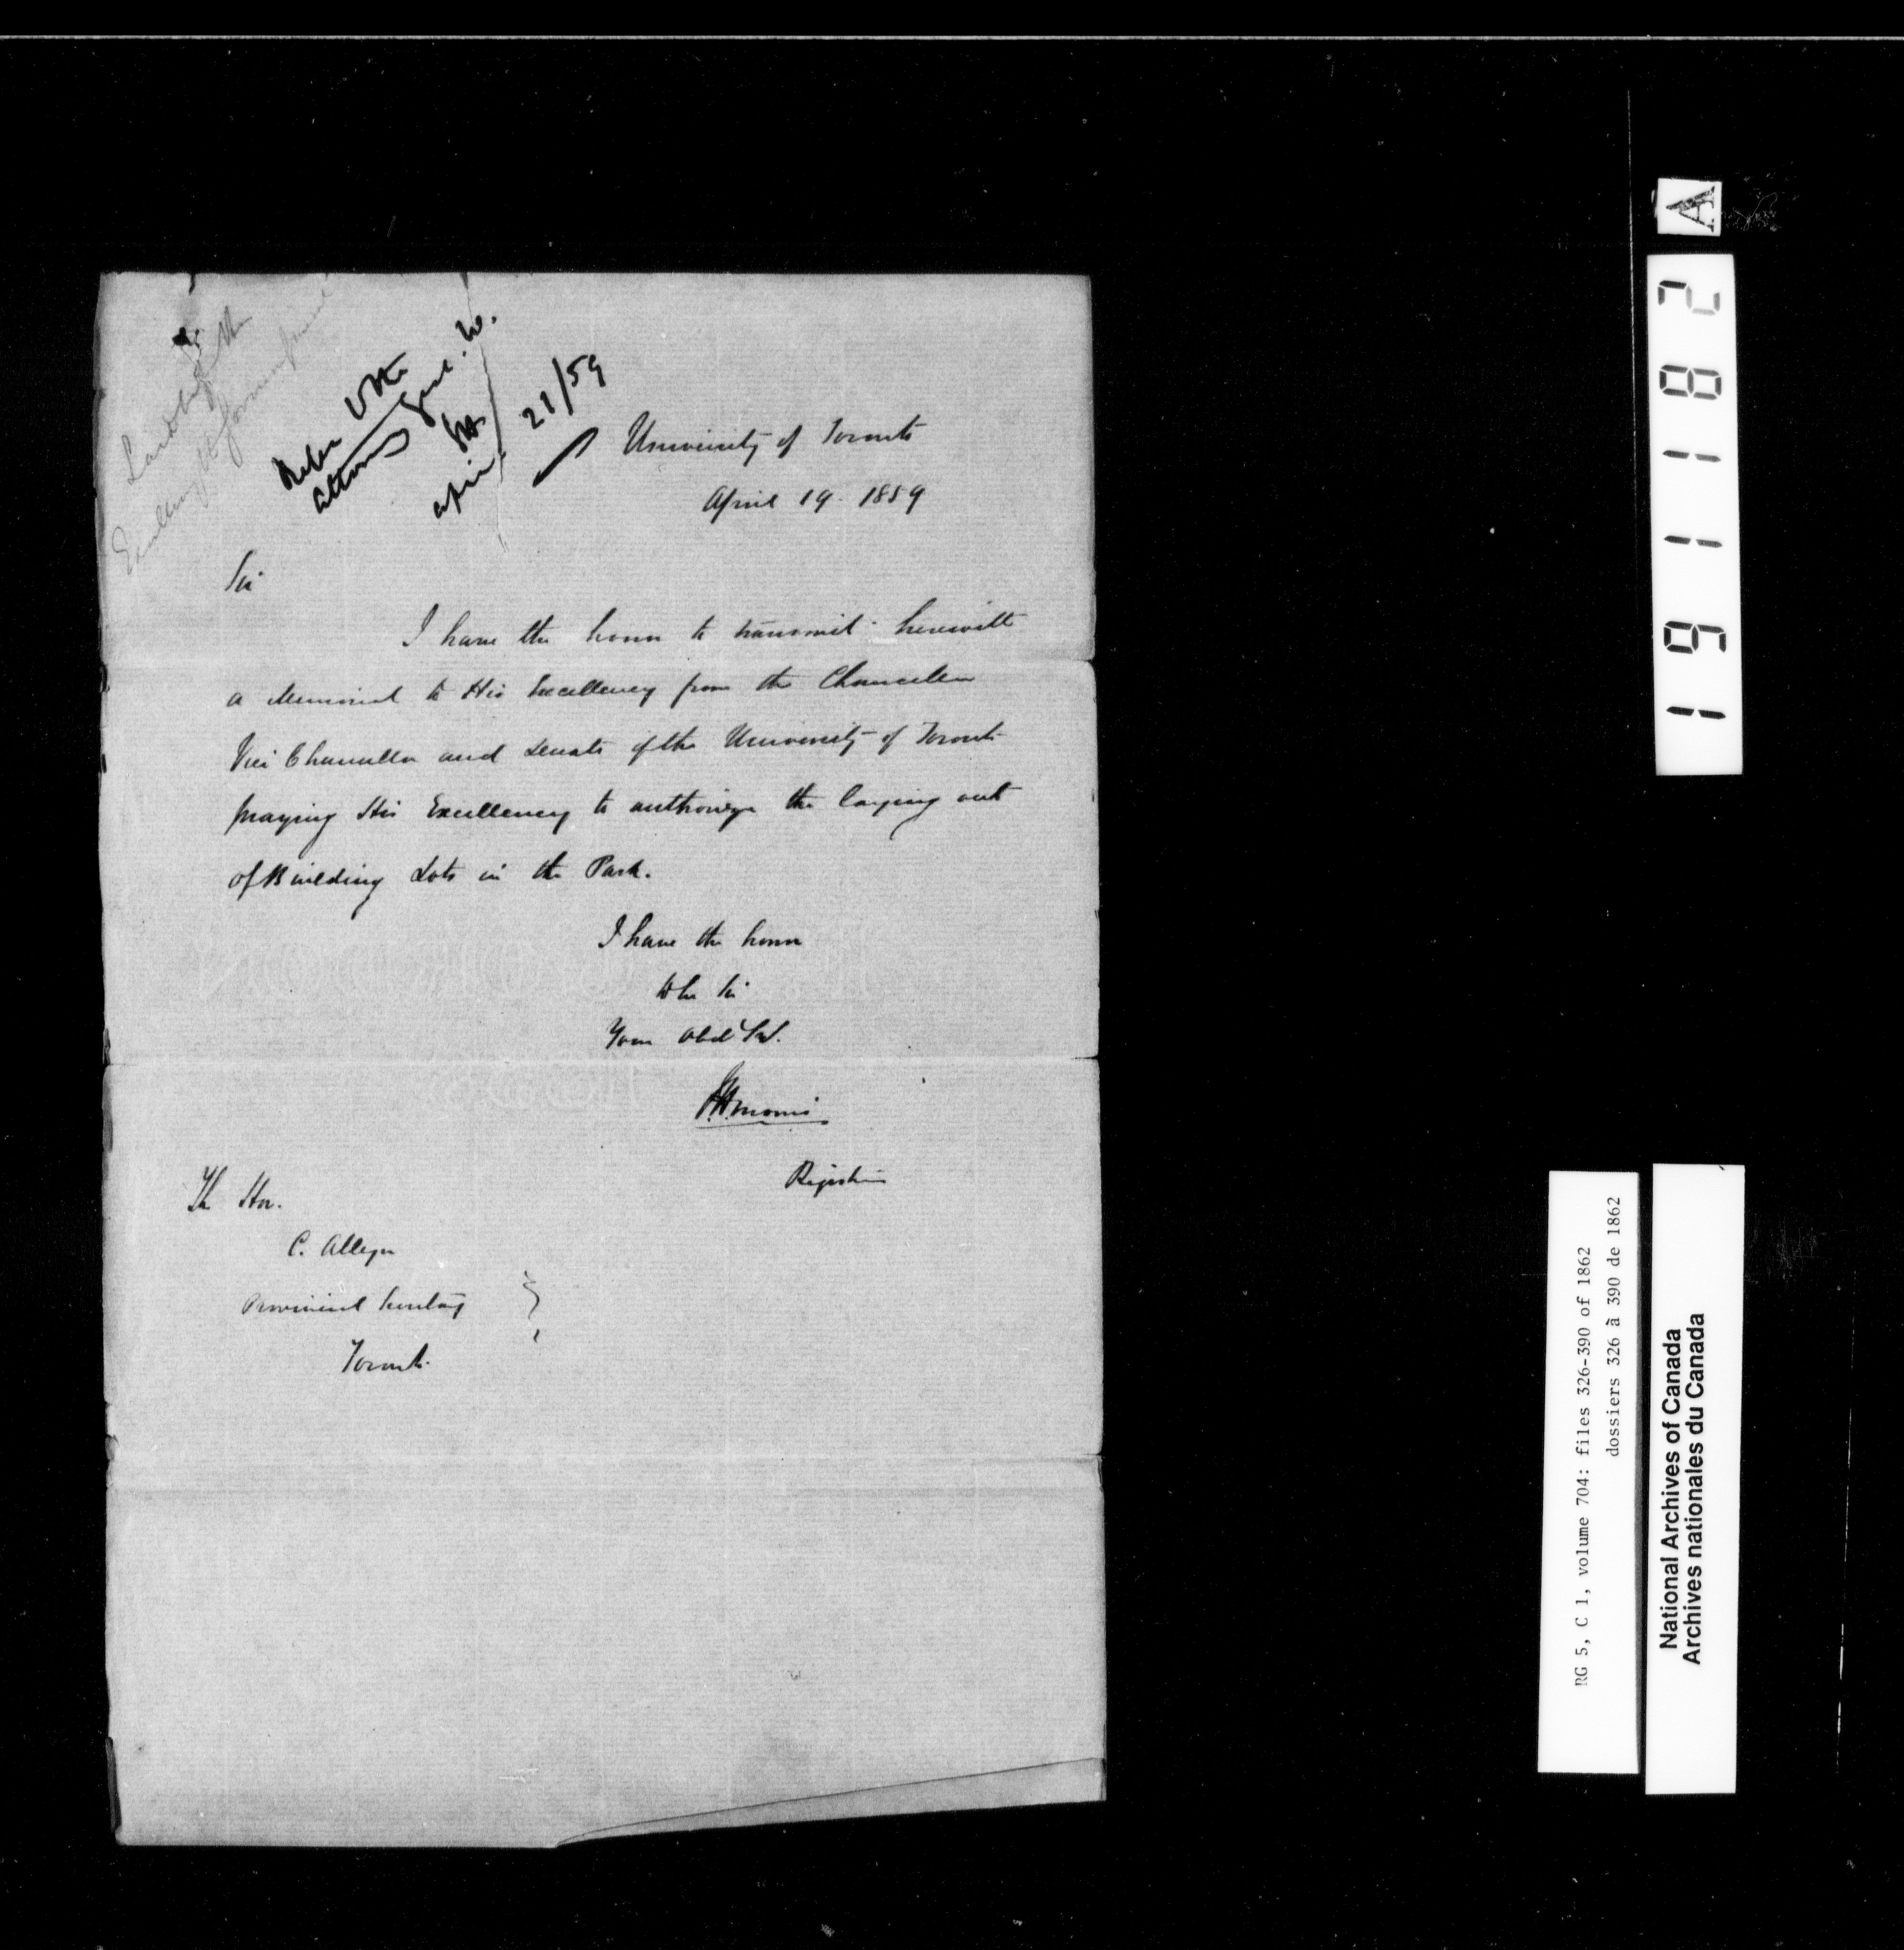 Refer to the
Attorney Genl. W.
April 21/59
University of Toronto
April 19. 1859
Sir
I have the honor to transmit herewith
a Memorial to His Excellency from the Chancellor
Vice Chancellor and Senate of the University of Toronto
praying His Excellency to authorize the laying out
of Building Lots in the Park.
I have the honor
to be Sir
Your Obdt Svt.
Morris
Registrar
The Hon.
C. Alleyn
Provincial Secretary
Toronto
A
1911182
RG 5, C 1, volume 704: files 326-390 of 1862
dossiers 326 à 390 de 1862
National Archives of Canada
Archives nationales du Canada